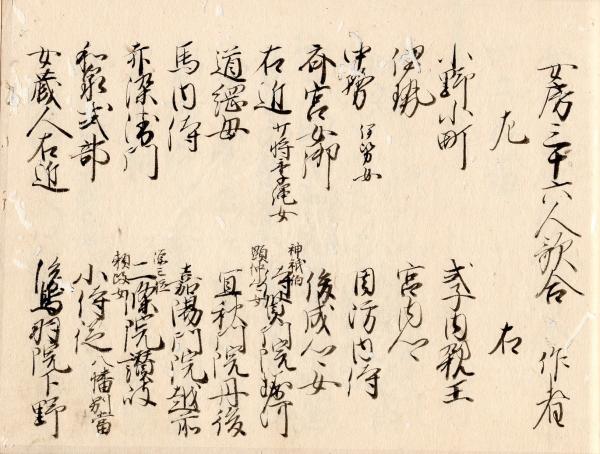 女房三十六人歌合 作者
左 右
小野小町 式子内親王
伊勢 宮内卿
中務 伊勢女 周防内侍
斎宮女御 俊成卿女
右近 少将季縄女 待賢門院堀河 神祇伯顕仲女
道綱母 宜秋門院丹後
馬内侍 嘉陽門院越前
赤染衛門 二条院讃岐 源三位頼政女
和泉式部 小侍従 八幡別当
女蔵人右近 後鳥羽院下野